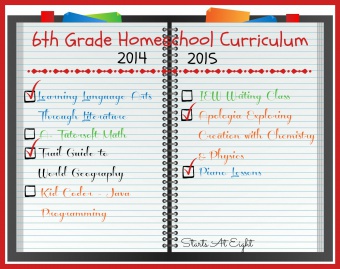 6th Grade Homeschool Curriculum
2014
2015
Learning Language Arts
Through Literature
Tatersoft Math
Trail Guide to
World Geography
Kid Coder - Java
Programming
IEW Writing Class
Apologia Exploring
Creation with Chemistry
& Physics
Piano Lessons
Starts At Eight